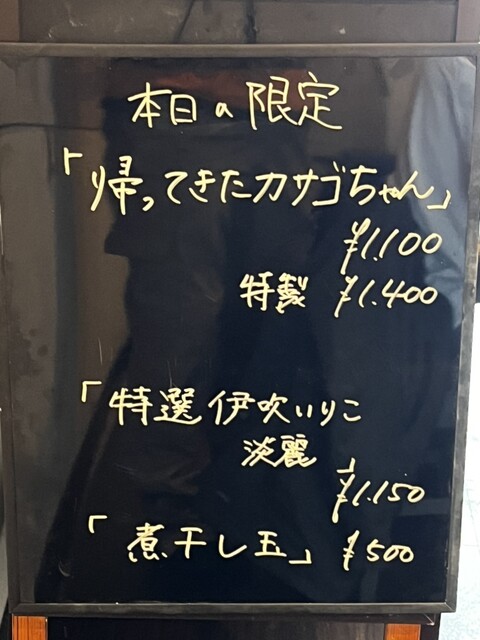 本日の限定
「帰ってきたカサゴちゃん」
¥1.100
特製 ¥1.400
「特選伊吹いりこ
淡麗」
¥1.150
「煮干し玉」 ¥500